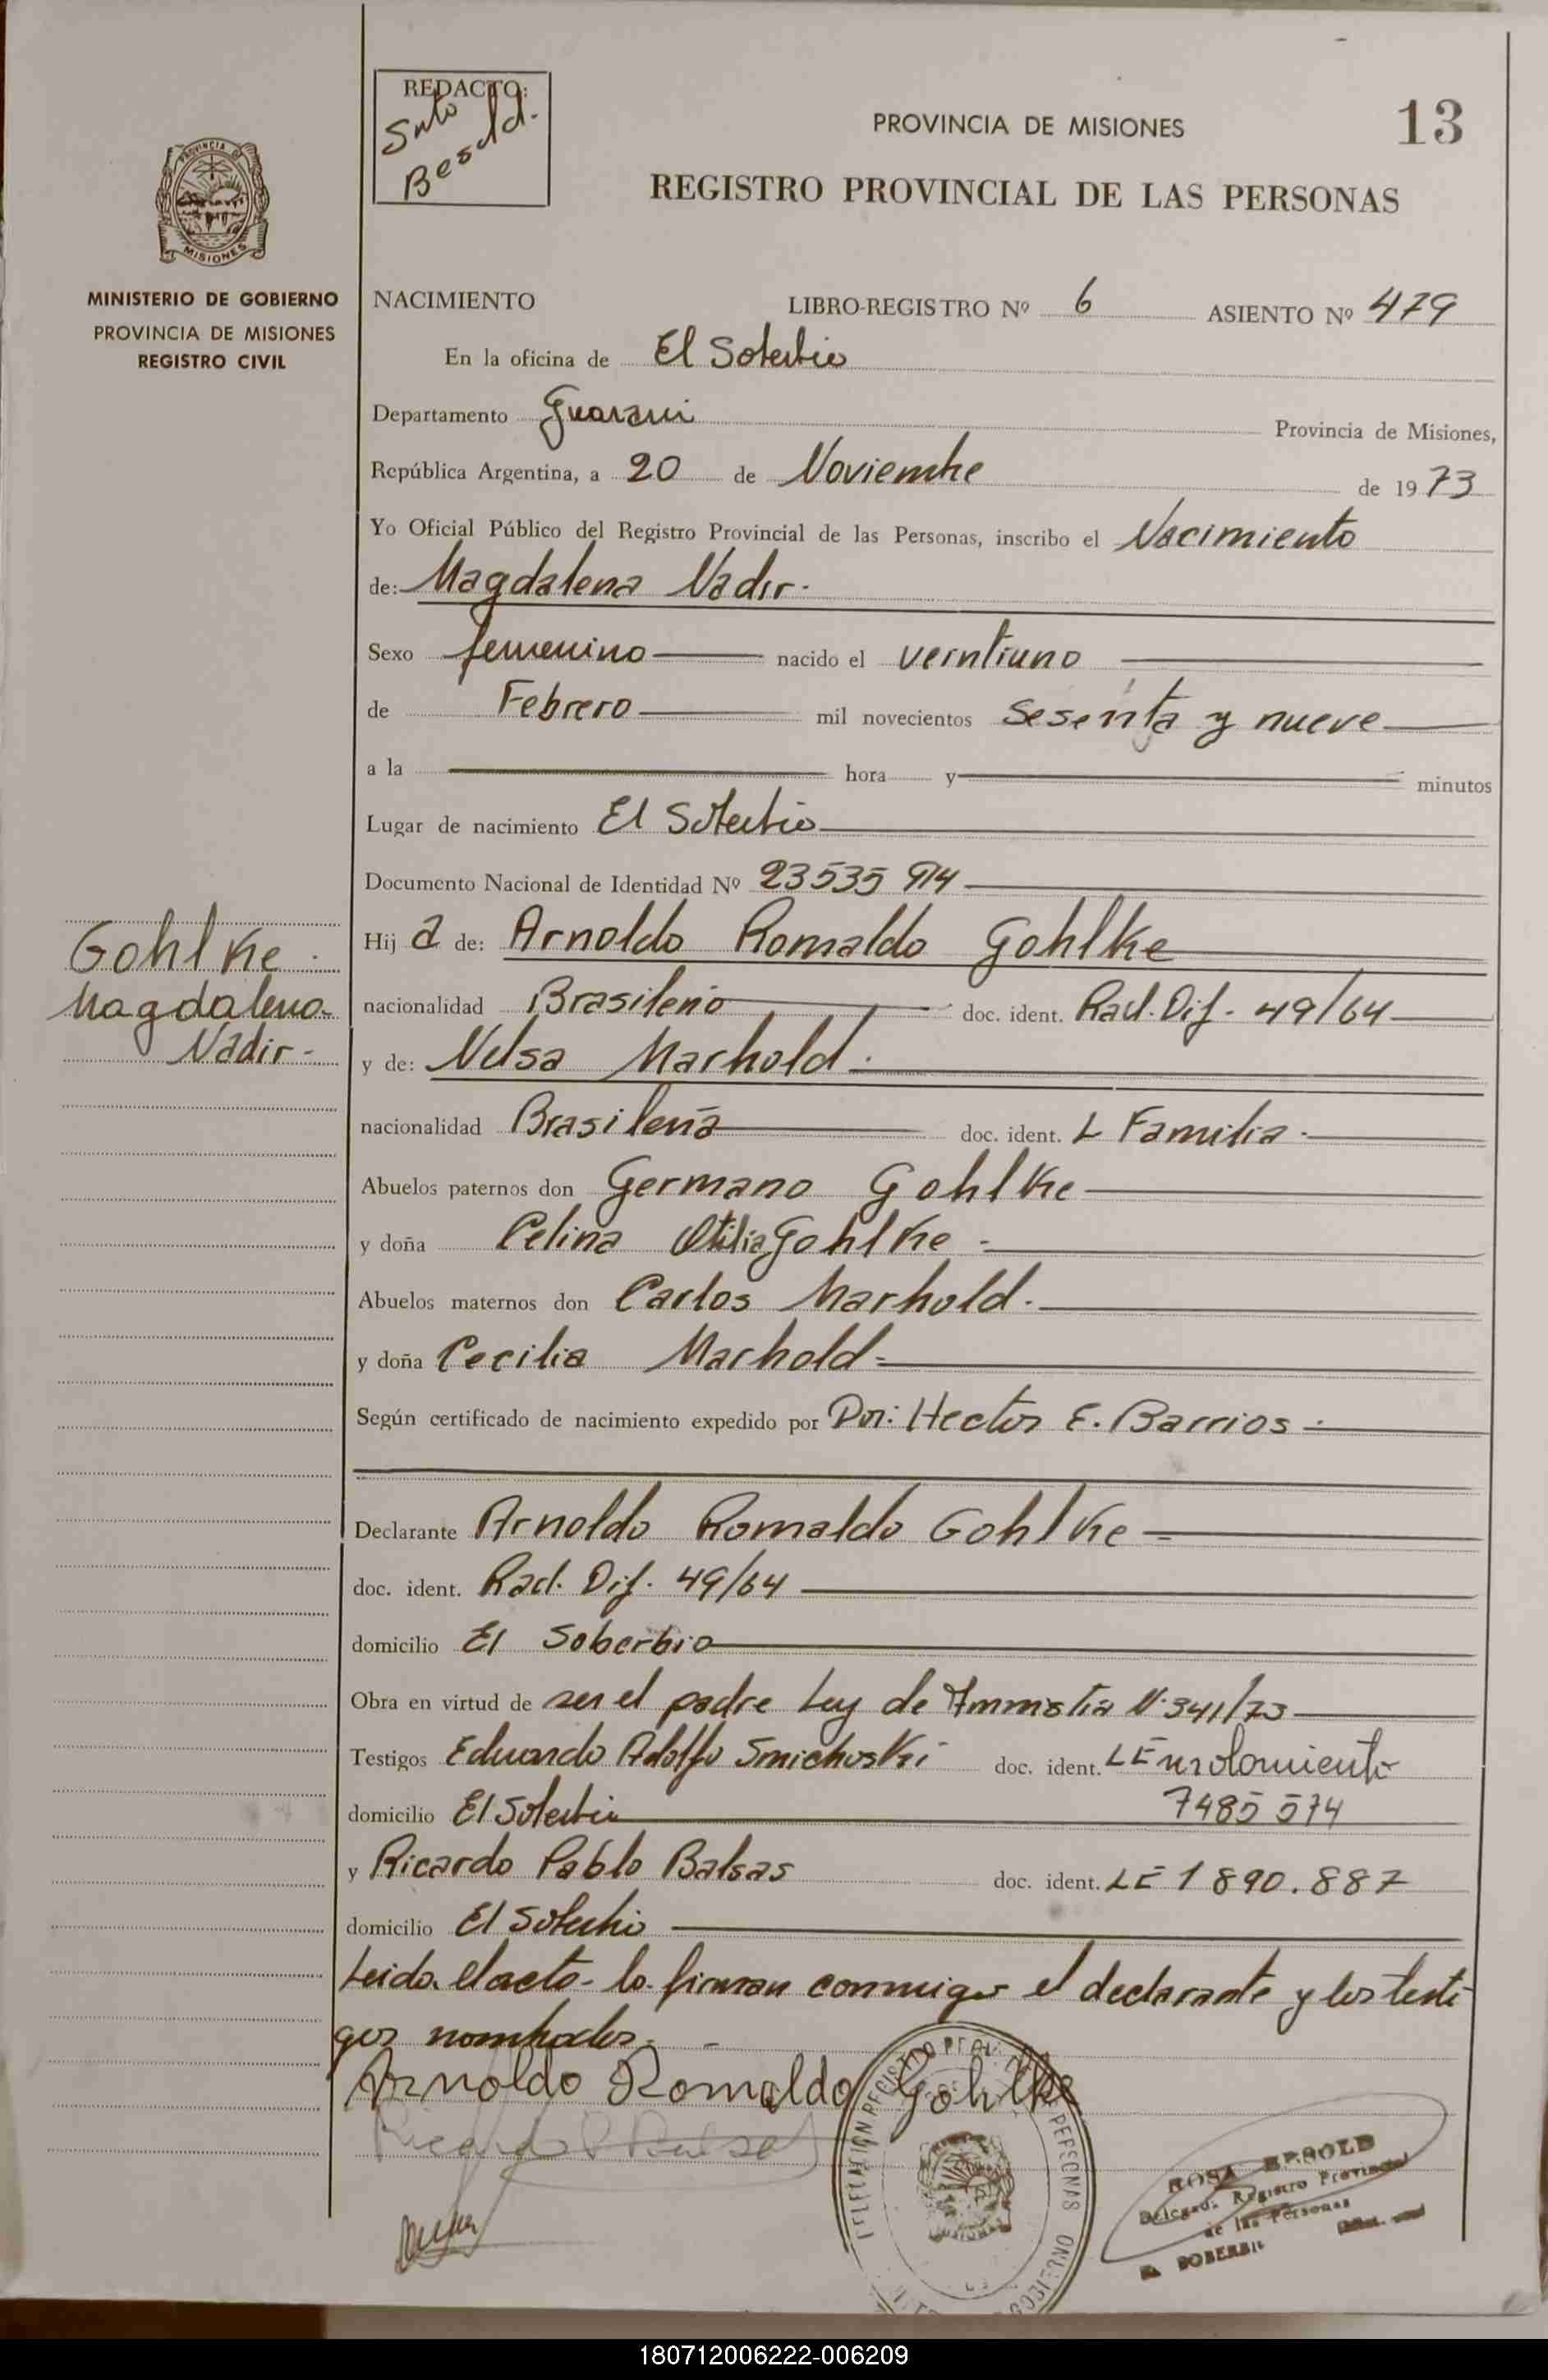 REDACTO:
Besold.
PROVINCIA DE MISIONES
13
REGISTRO PROVINCIAL DE LAS PERSONAS
PROVINCIA DE
MISIONES
MINISTERIO DE GOBIERNO
PROVINCIA DE MISIONES
REGISTRO CIVIL
NACIMIENTO LIBRO-REGISTRO Nº 6 ASIENTO Nº 479
En la oficina de El Soberbio
Departamento Guarani Provincia de Misiones,
República Argentina, a 20 de Noviembre de 1973
Yo Oficial Público del Registro Provincial de las Personas, inscribo el Nacimiento
de: Magdalena Nadir.
Sexo femenino nacido el veintiuno
de Febrero mil novecientos sesenta y nueve
a la hora y minutos
Lugar de nacimiento El Soberbio
Documento Nacional de Identidad Nº 23535 914
Hija de: Arnoldo Romaldo Gohlke
Gohlke
Magdalena
Nadir-
nacionalidad Brasileño doc. ident. Rad. Dif. 49/64
y de: Nelsa Marhold.
nacionalidad Brasileña doc. ident. L Familia.
Abuelos paternos don Germano Gohlke
y doña Celina Otilia Gohlke -
Abuelos maternos don Carlos Marhold.
y doña Cecilia Marhold
Según certificado de nacimiento expedido por Dr: Hector E. Barrios
Declarante Arnoldo Romaldo Gohlke
doc. ident. Rad. Dif. 49/64
domicilio El Soberbio
Obra en virtud de ser el padre Ley de Ammistia N. 341/73
Testigos Eduardo Adolfo Smichoski doc. ident. L Enrolamiento
domicilio El Soberbio 7485 574
y Ricardo Pablo Balsas doc. ident. LE 1 890.887
domicilio El Soberbio
Leido el acto lo firman conmigo el declarante y los testi
gos nombrados.
Arnoldo Romaldo Gohlke
Ricardo P Balsas
ROSA BESOLD
Delegada Registro Provincial
de las Personas
EL SOBERBIO
180712006222-006209